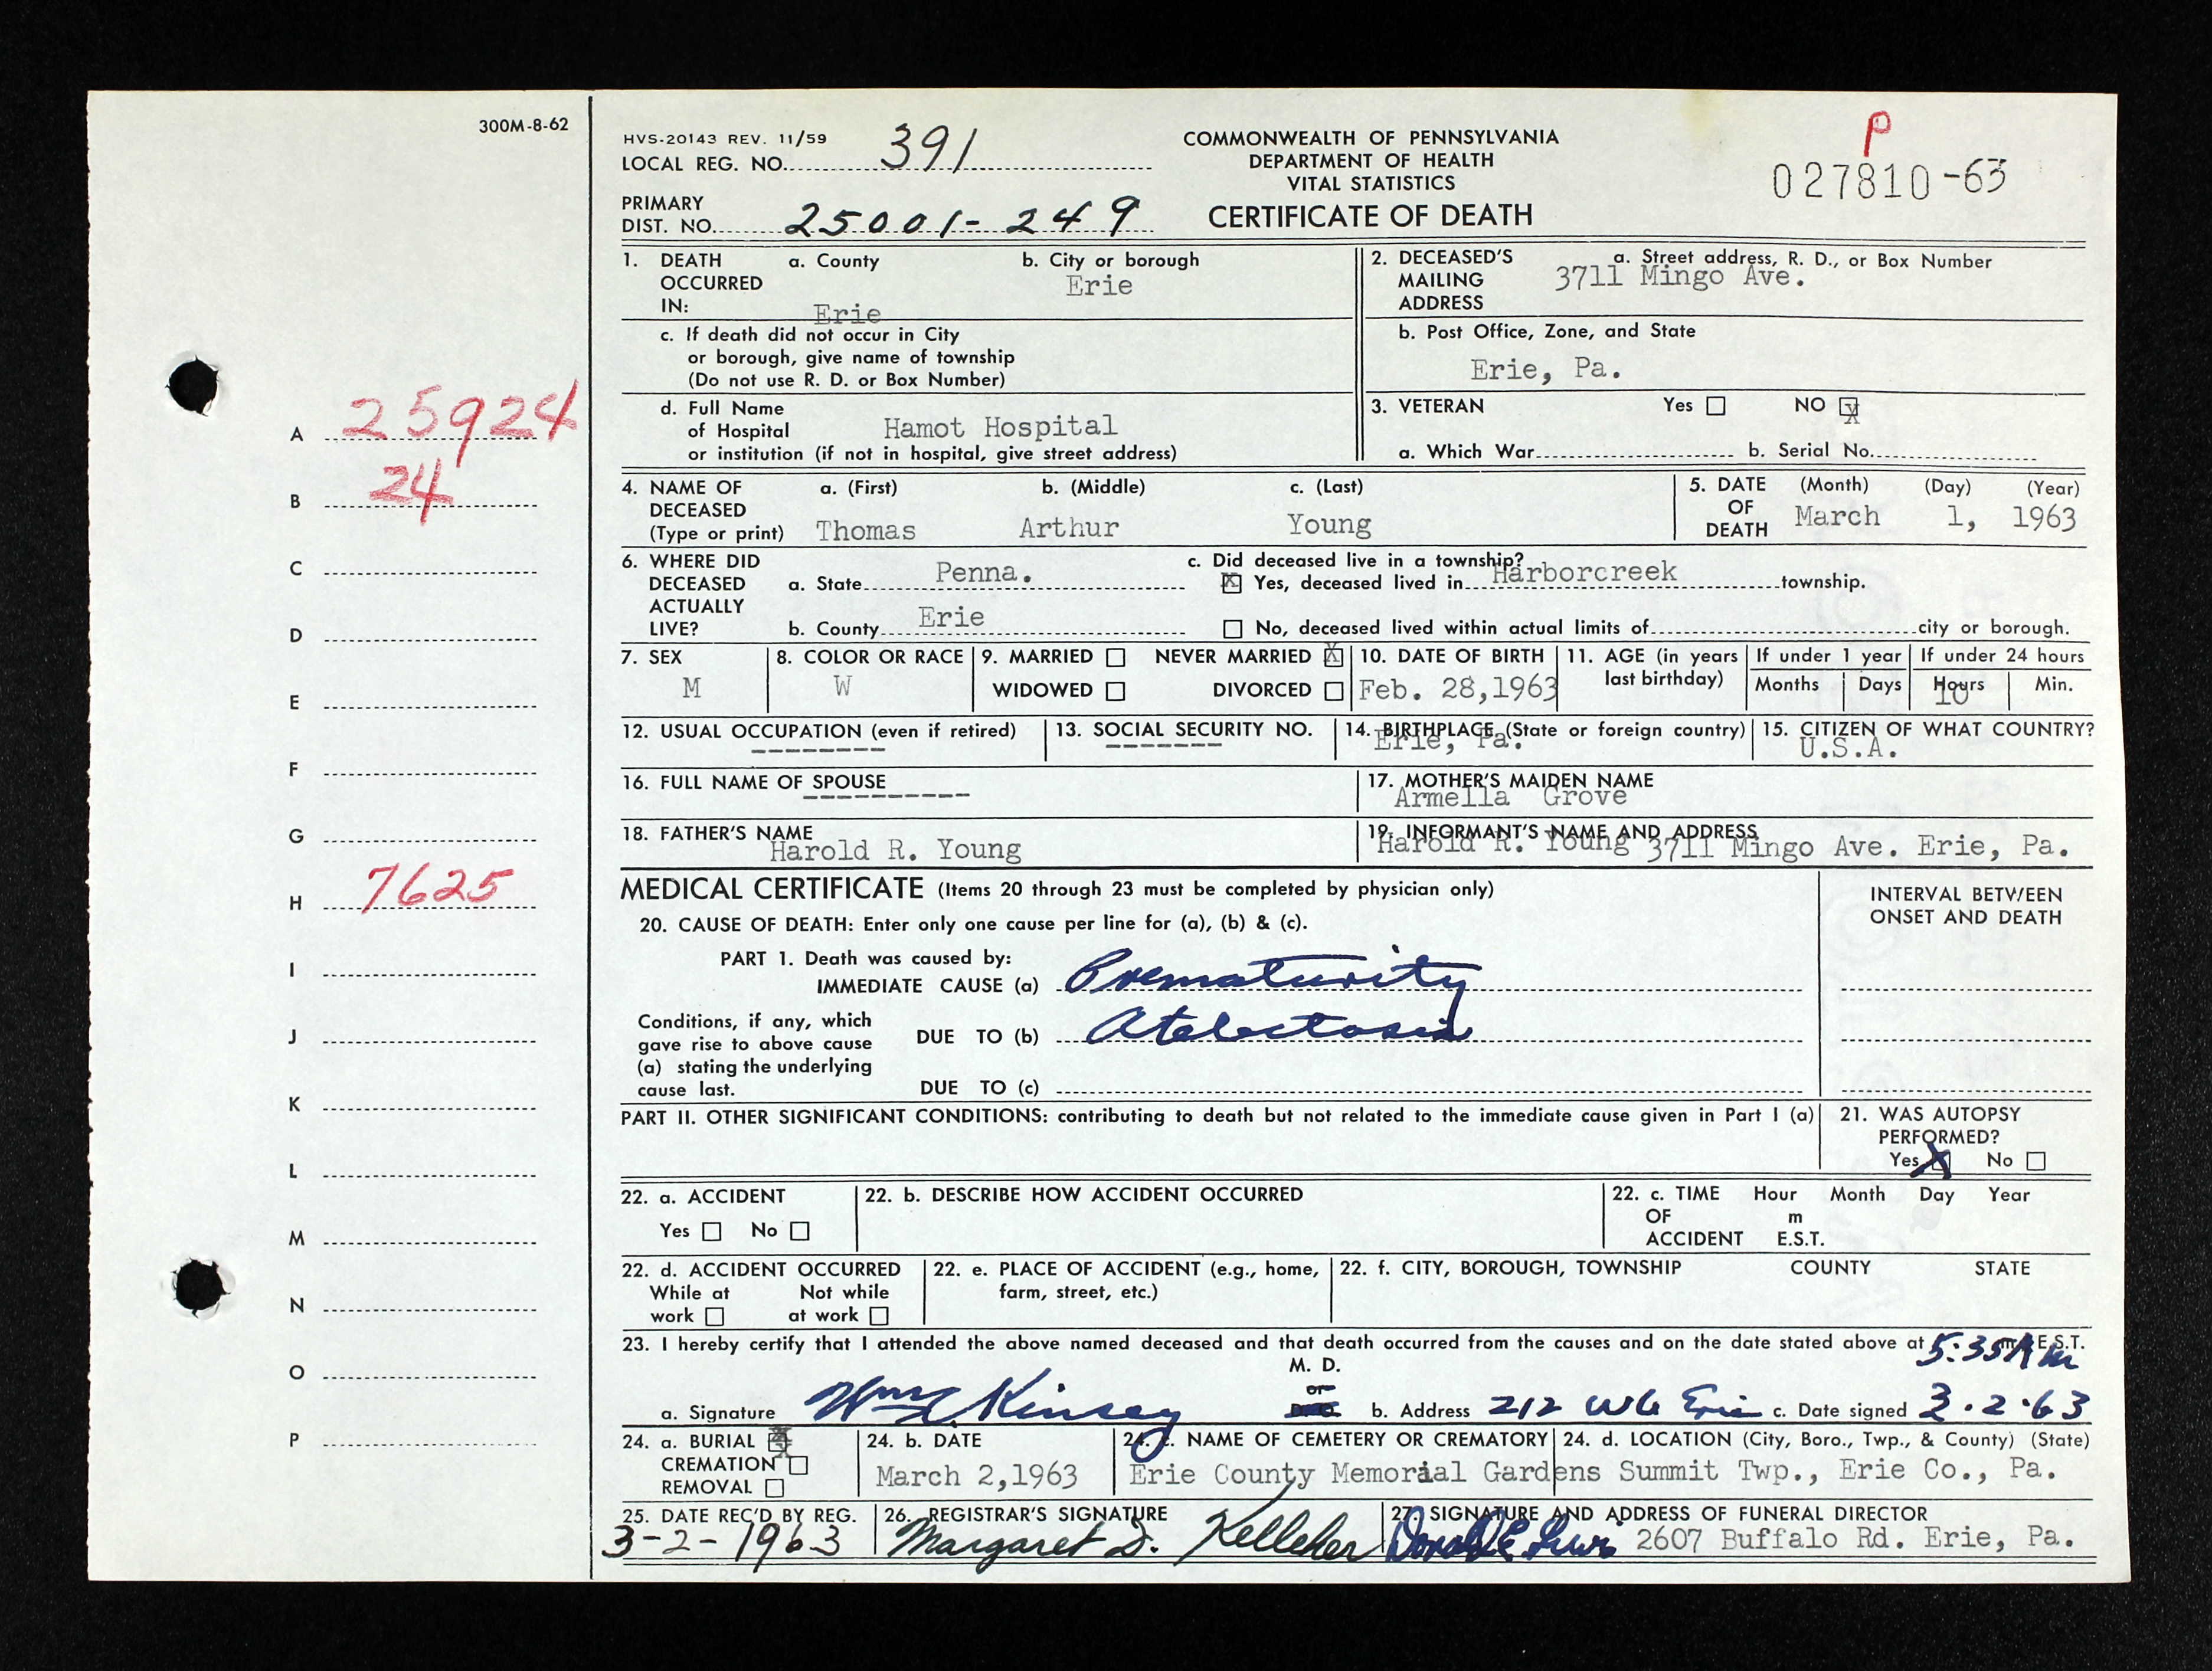 300M-8-62
HVS-20143 REV. 11/59
LOCAL REG. NO. 391
PRIMARY
DIST. NO. 25001-249
COMMONWEALTH OF PENNSYLVANIA
DEPARTMENT OF HEALTH
VITAL STATISTICS
CERTIFICATE OF DEATH
P
027810-63
1. DEATH OCCURRED IN: a. County Erie b. City or borough Erie
c. If death did not occur in City
or borough, give name of township
(Do not use R. D. or Box Number)
d. Full Name
of Hospital Hamot Hospital
or institution (if not in hospital, give street address)
2. DECEASED'S MAILING ADDRESS a. Street address, R. D., or Box Number
3711 Mingo Ave.
b. Post Office, Zone, and State
Erie, Pa.
3. VETERAN Yes NO X
a. Which War b. Serial No.
4. NAME OF DECEASED (Type or print) a. (First) b. (Middle) c. (Last)
Thomas Arthur Young
5. DATE OF DEATH (Month) (Day) (Year)
March 1, 1963
6. WHERE DID DECEASED ACTUALLY LIVE? a. State Penna.
b. County Erie
c. Did deceased live in a township?
X Yes, deceased lived in Harborcreek township.
No, deceased lived within actual limits of city or borough.
7. SEX M
8. COLOR OR RACE W
9. MARRIED NEVER MARRIED X
WIDOWED DIVORCED
10. DATE OF BIRTH Feb. 28,1963
11. AGE (in years last birthday)
If under 1 year Months Days
If under 24 hours Hours 10 Min.
12. USUAL OCCUPATION (even if retired) --------
13. SOCIAL SECURITY NO. -------
14. BIRTHPLACE (State or foreign country) Erie, Pa.
15. CITIZEN OF WHAT COUNTRY? U.S.A.
16. FULL NAME OF SPOUSE ----------
17. MOTHER'S MAIDEN NAME Armella Grove
18. FATHER'S NAME Harold R. Young
19. INFORMANT'S NAME AND ADDRESS Harold R. Young 3711 Mingo Ave. Erie, Pa.
MEDICAL CERTIFICATE (Items 20 through 23 must be completed by physician only)
INTERVAL BETWEEN
ONSET AND DEATH
20. CAUSE OF DEATH: Enter only one cause per line for (a), (b) & (c).
PART 1. Death was caused by:
IMMEDIATE CAUSE (a) Prematurity
Conditions, if any, which
gave rise to above cause
(a) stating the underlying
cause last.
DUE TO (b) Atelectasis
DUE TO (c)
PART II. OTHER SIGNIFICANT CONDITIONS: contributing to death but not related to the immediate cause given in Part I (a)
21. WAS AUTOPSY
PERFORMED?
Yes X No
22. a. ACCIDENT
Yes No
22. b. DESCRIBE HOW ACCIDENT OCCURRED
22. c. TIME OF ACCIDENT Hour Month Day Year
m
E.S.T.
22. d. ACCIDENT OCCURRED
While at work Not while at work
22. e. PLACE OF ACCIDENT (e.g., home, farm, street, etc.)
22. f. CITY, BOROUGH, TOWNSHIP COUNTY STATE
23. I hereby certify that I attended the above named deceased and that death occurred from the causes and on the date stated above at 5:35 A m E.S.T.
a. Signature Wm Kinsey M. D. or D. O. b. Address 212 W 6 Erie c. Date signed 3.2.63
24. a. BURIAL X
CREMATION
REMOVAL
24. b. DATE
March 2,1963
24. c. NAME OF CEMETERY OR CREMATORY
Erie County Memorial Gardens
24. d. LOCATION (City, Boro., Twp., & County) (State)
Summit Twp., Erie Co., Pa.
25. DATE REC'D BY REG.
3-2-1963
26. REGISTRAR'S SIGNATURE
Margaret D. Kelleher
27. SIGNATURE AND ADDRESS OF FUNERAL DIRECTOR
2607 Buffalo Rd. Erie, Pa.
A 25924
B 24
C
D
E
F
G
H 7625
I
J
K
L
M
N
O
P